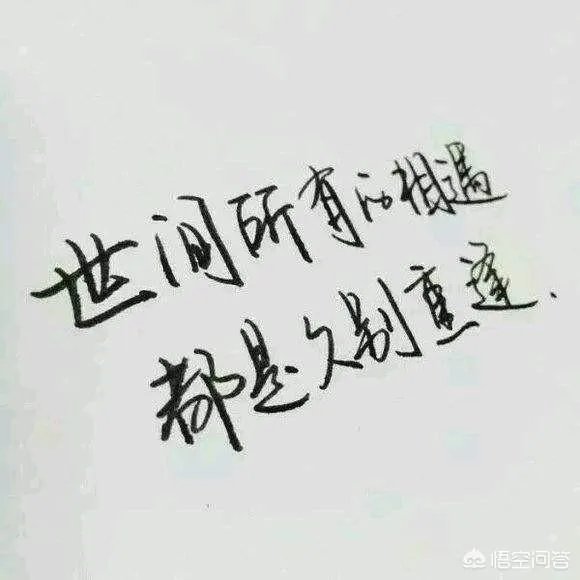 世间所有的相遇
都是久别重逢.
悟空问答